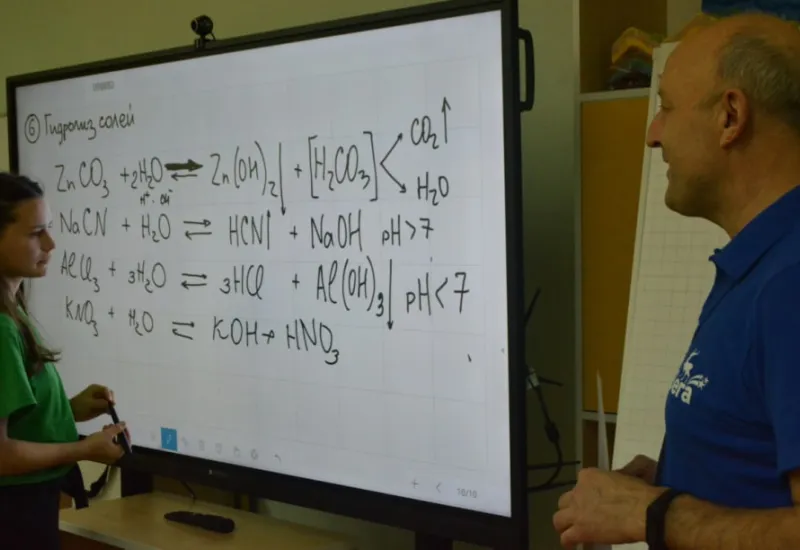 ⑥ Гидролиз солей
ZnCO₃ + 2H₂O ⇌ Zn(OH)₂↓ + [H₂CO₃] CO₂↑ H₂O
H⁺ OH⁻
NaCN + H₂O ⇌ HCN↑ + NaOH pH>7
AlCl₃ + 3H₂O ⇌ 3HCl + Al(OH)₃↓ pH<7
KNO₃ + H₂O ⇌ KOH + HNO₃
10/10